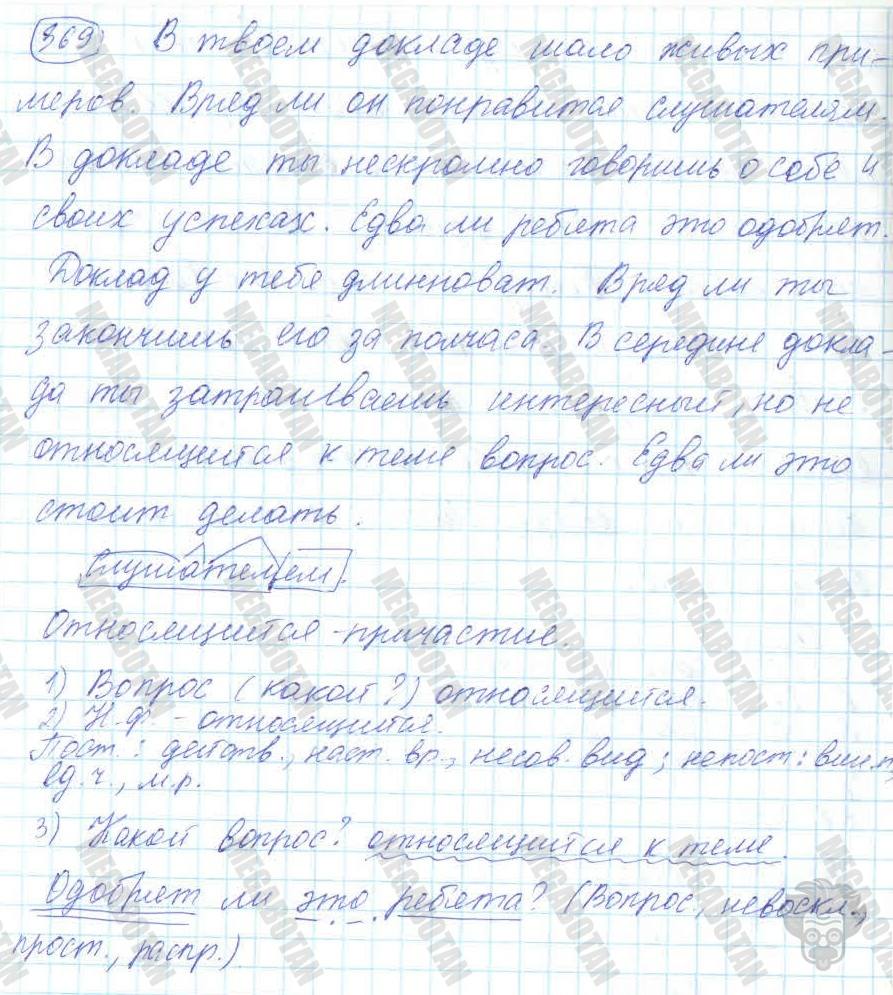 369) В твоем докладе мало живых при-
меров. Вряд ли он понравится слушателям.
В докладе ты нескромно говоришь о себе и
своих успехах. Едва ли ребята это одобрят.
Доклад у тебя длинноват. Вряд ли ты
закончишь его за полчаса. В середине докла-
да ты затрагиваешь интересный, но не
относящийся к теме вопрос. Едва ли это
стоит делать.
Слушателем.
Относящийся - причастие.
1) Вопрос (какой?) относящийся.
2) Н.ф. - относящийся.
Пост.: действ., наст. вр., несов. вид; непост: вин.п,
ед.ч., м.р.
3) Какой вопрос? относящийся к теме.
Одобрят ли это ребята? (Вопрос, невоскл.,
прост., распр.)
MEGABOTAN